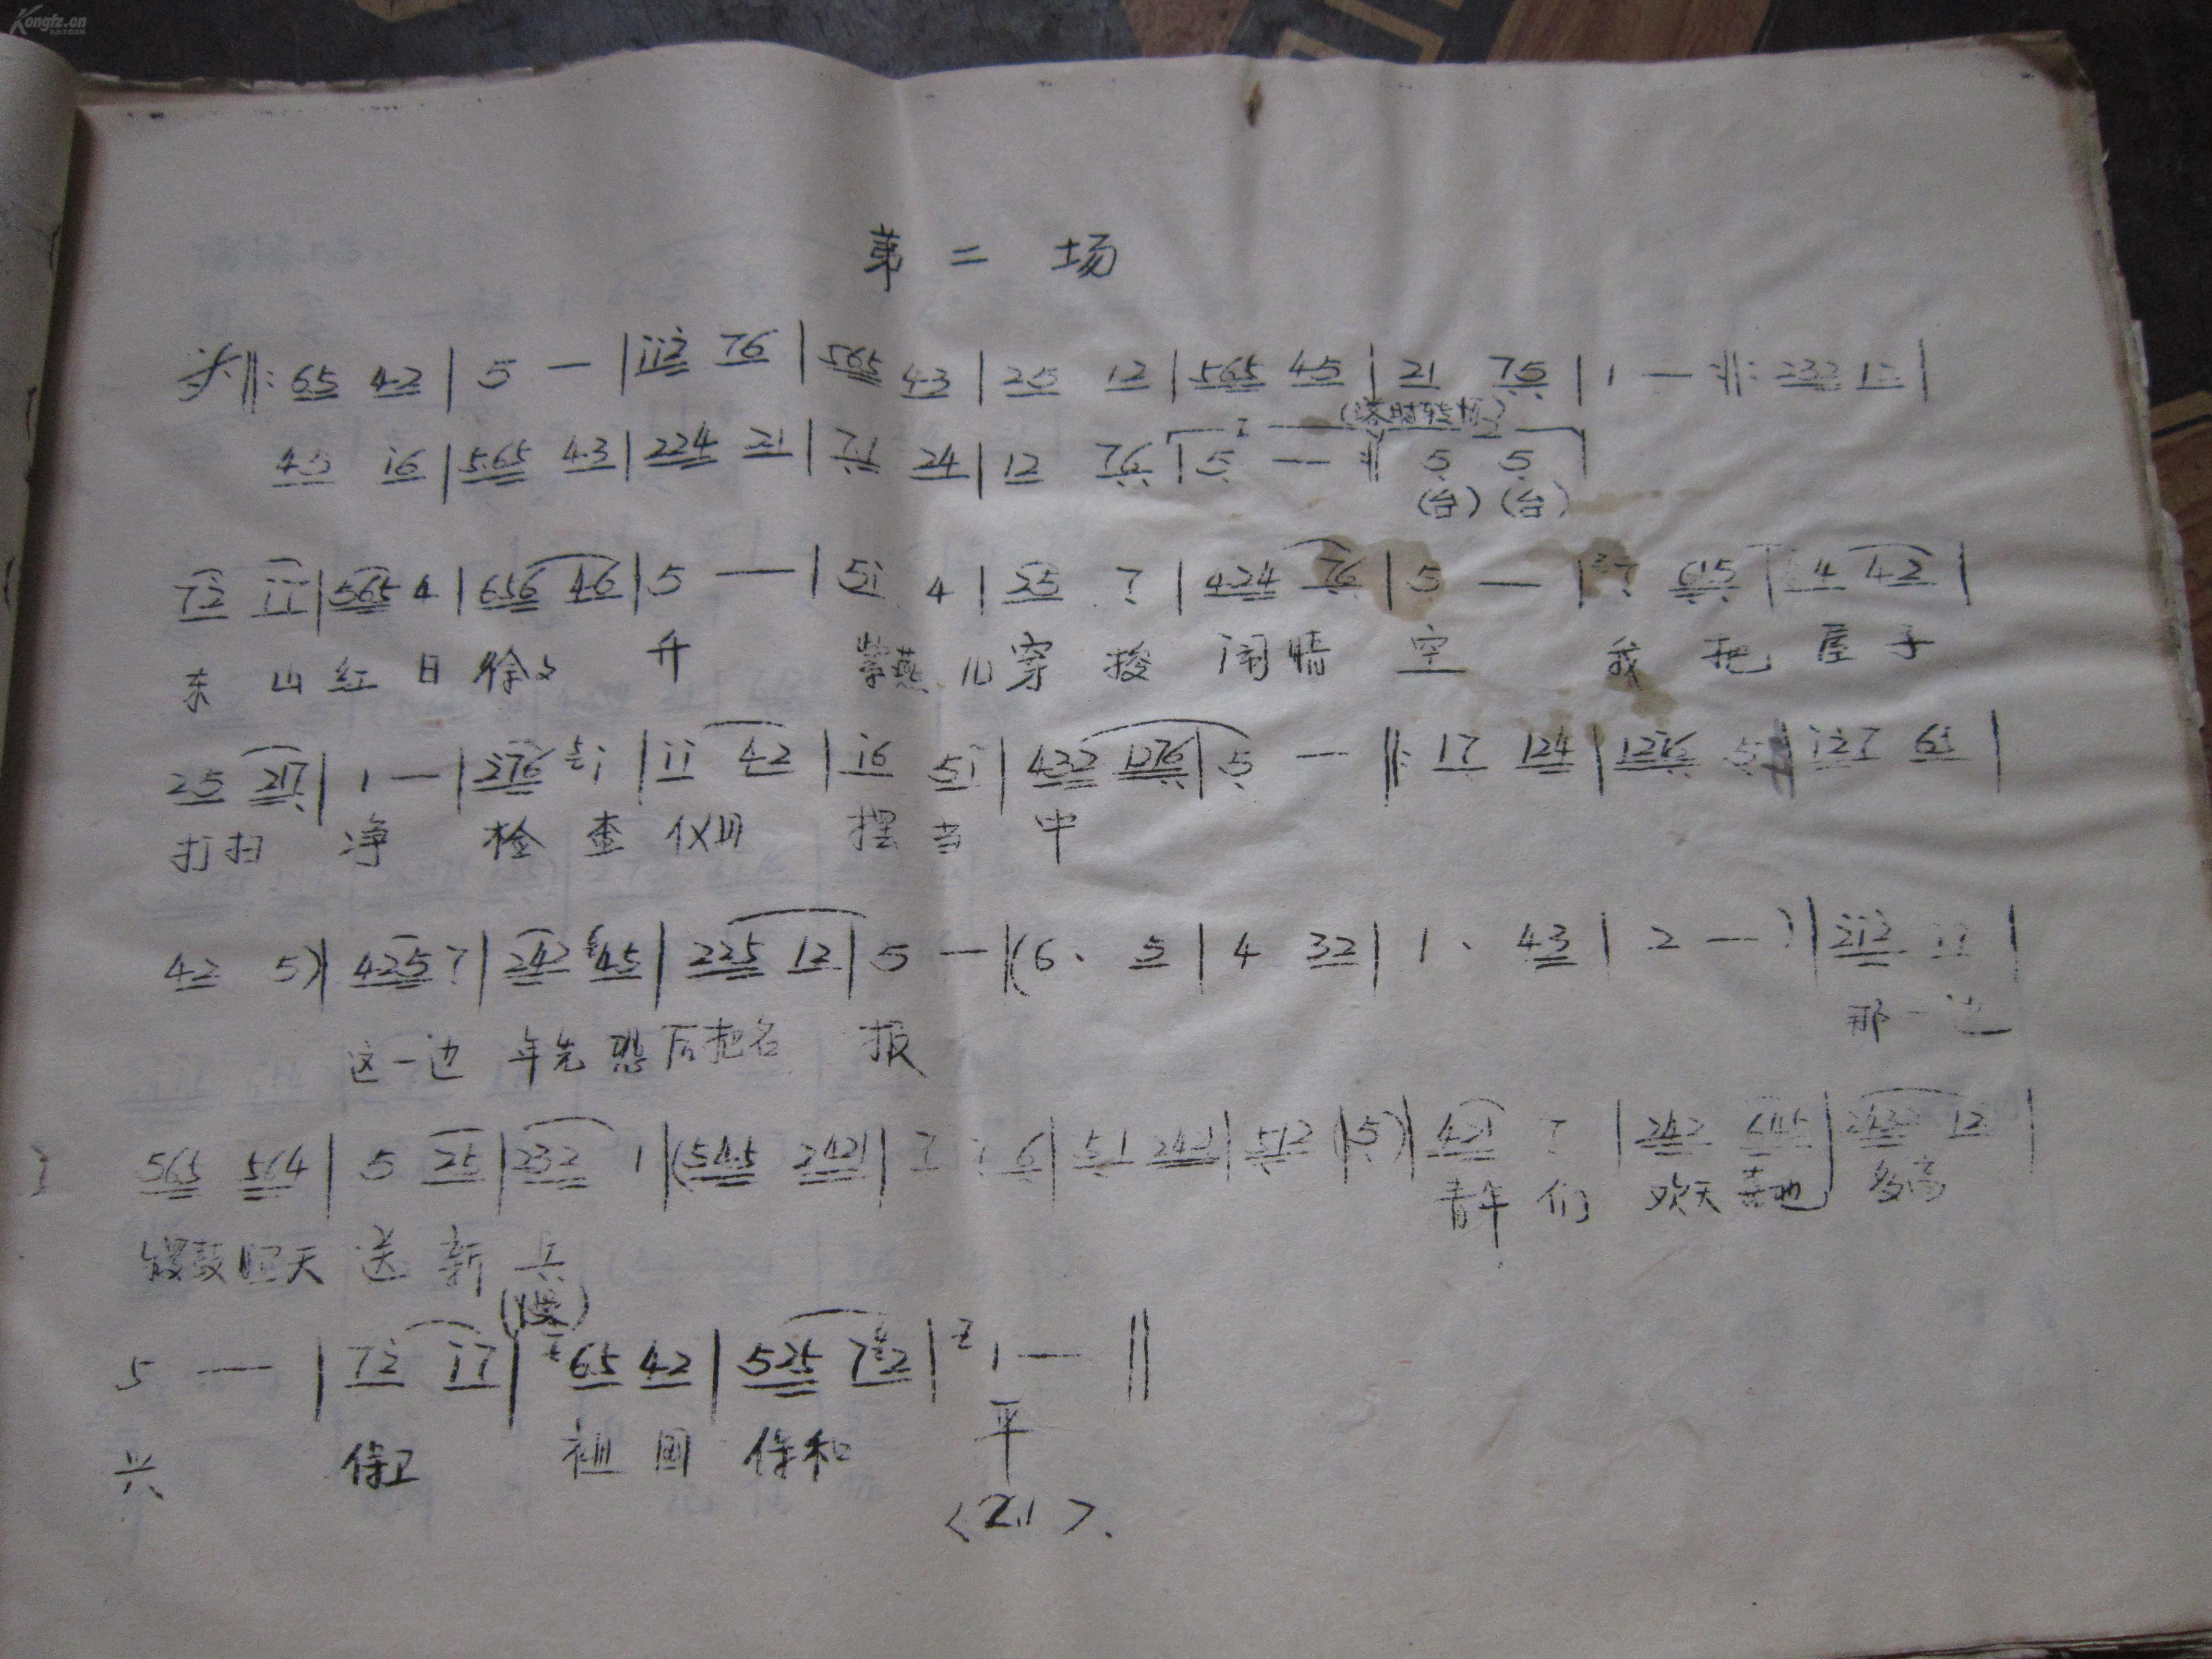 Kongfz.cn
第二场
サ‖: 65 42 | 5 — | i i 2̇ 76 | 565 43 | 25 12 | 565 45 | 21 75 | 1 — :‖: 232 12 |
45 i6 | 565 43 | 224 21 | 71 24 | 12 76 | 5 — :‖ 5 5 |
(台) (台)
72̇ ii | 565 4 | 656 46 | 5 — | 5i 4 | 25 7 | 424 76 | 5 — | 7 615 | 4 42 |
东 山 红 日 徐々 升 紫燕 儿 穿 梭 闹 晴 空 我 把 屋 子
25 217 | 1 — | 276 i | ii 42 | i6 5i | 432 1276 | 5 — ‖: 17 124 | 1276 5 | i27 65 |
打扫 净 检 查 仪 摆 当 中
42 5) | 425 7 | 242 45 | 225 12 | 5 — ‖(6. 5 | 4 32 | 1. 43 | 2 — ) | 2̇i2̇
这一边 争先 恐后把名 报 那一边
565 564 | 5 25 | 232 1 | (545 2421 | 6 | 51 242 | 512 (5) | 421 7 | 242 | 12 |
锣鼓 天 送 新 兵 青年 们 欢天 喜地 多高
(慢)
5 — | 72̇ i7 | 65 42 | 525 72 | 1 — ‖
兴 保卫 祖 国 保和 平
<21>.